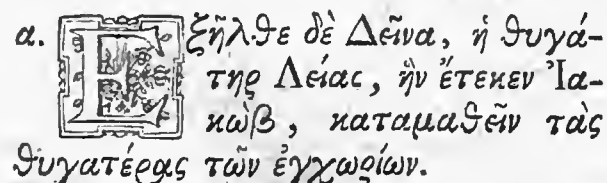 α. Εξῆλθε δὲ Δεῖνα, ἡ θυγά-
τηρ Λείας, ἣν ἔτεκεν Ἰα-
κὼβ, καταμαθεῖν τὰς
θυγατέρας τῶν ἐγχωρίων.